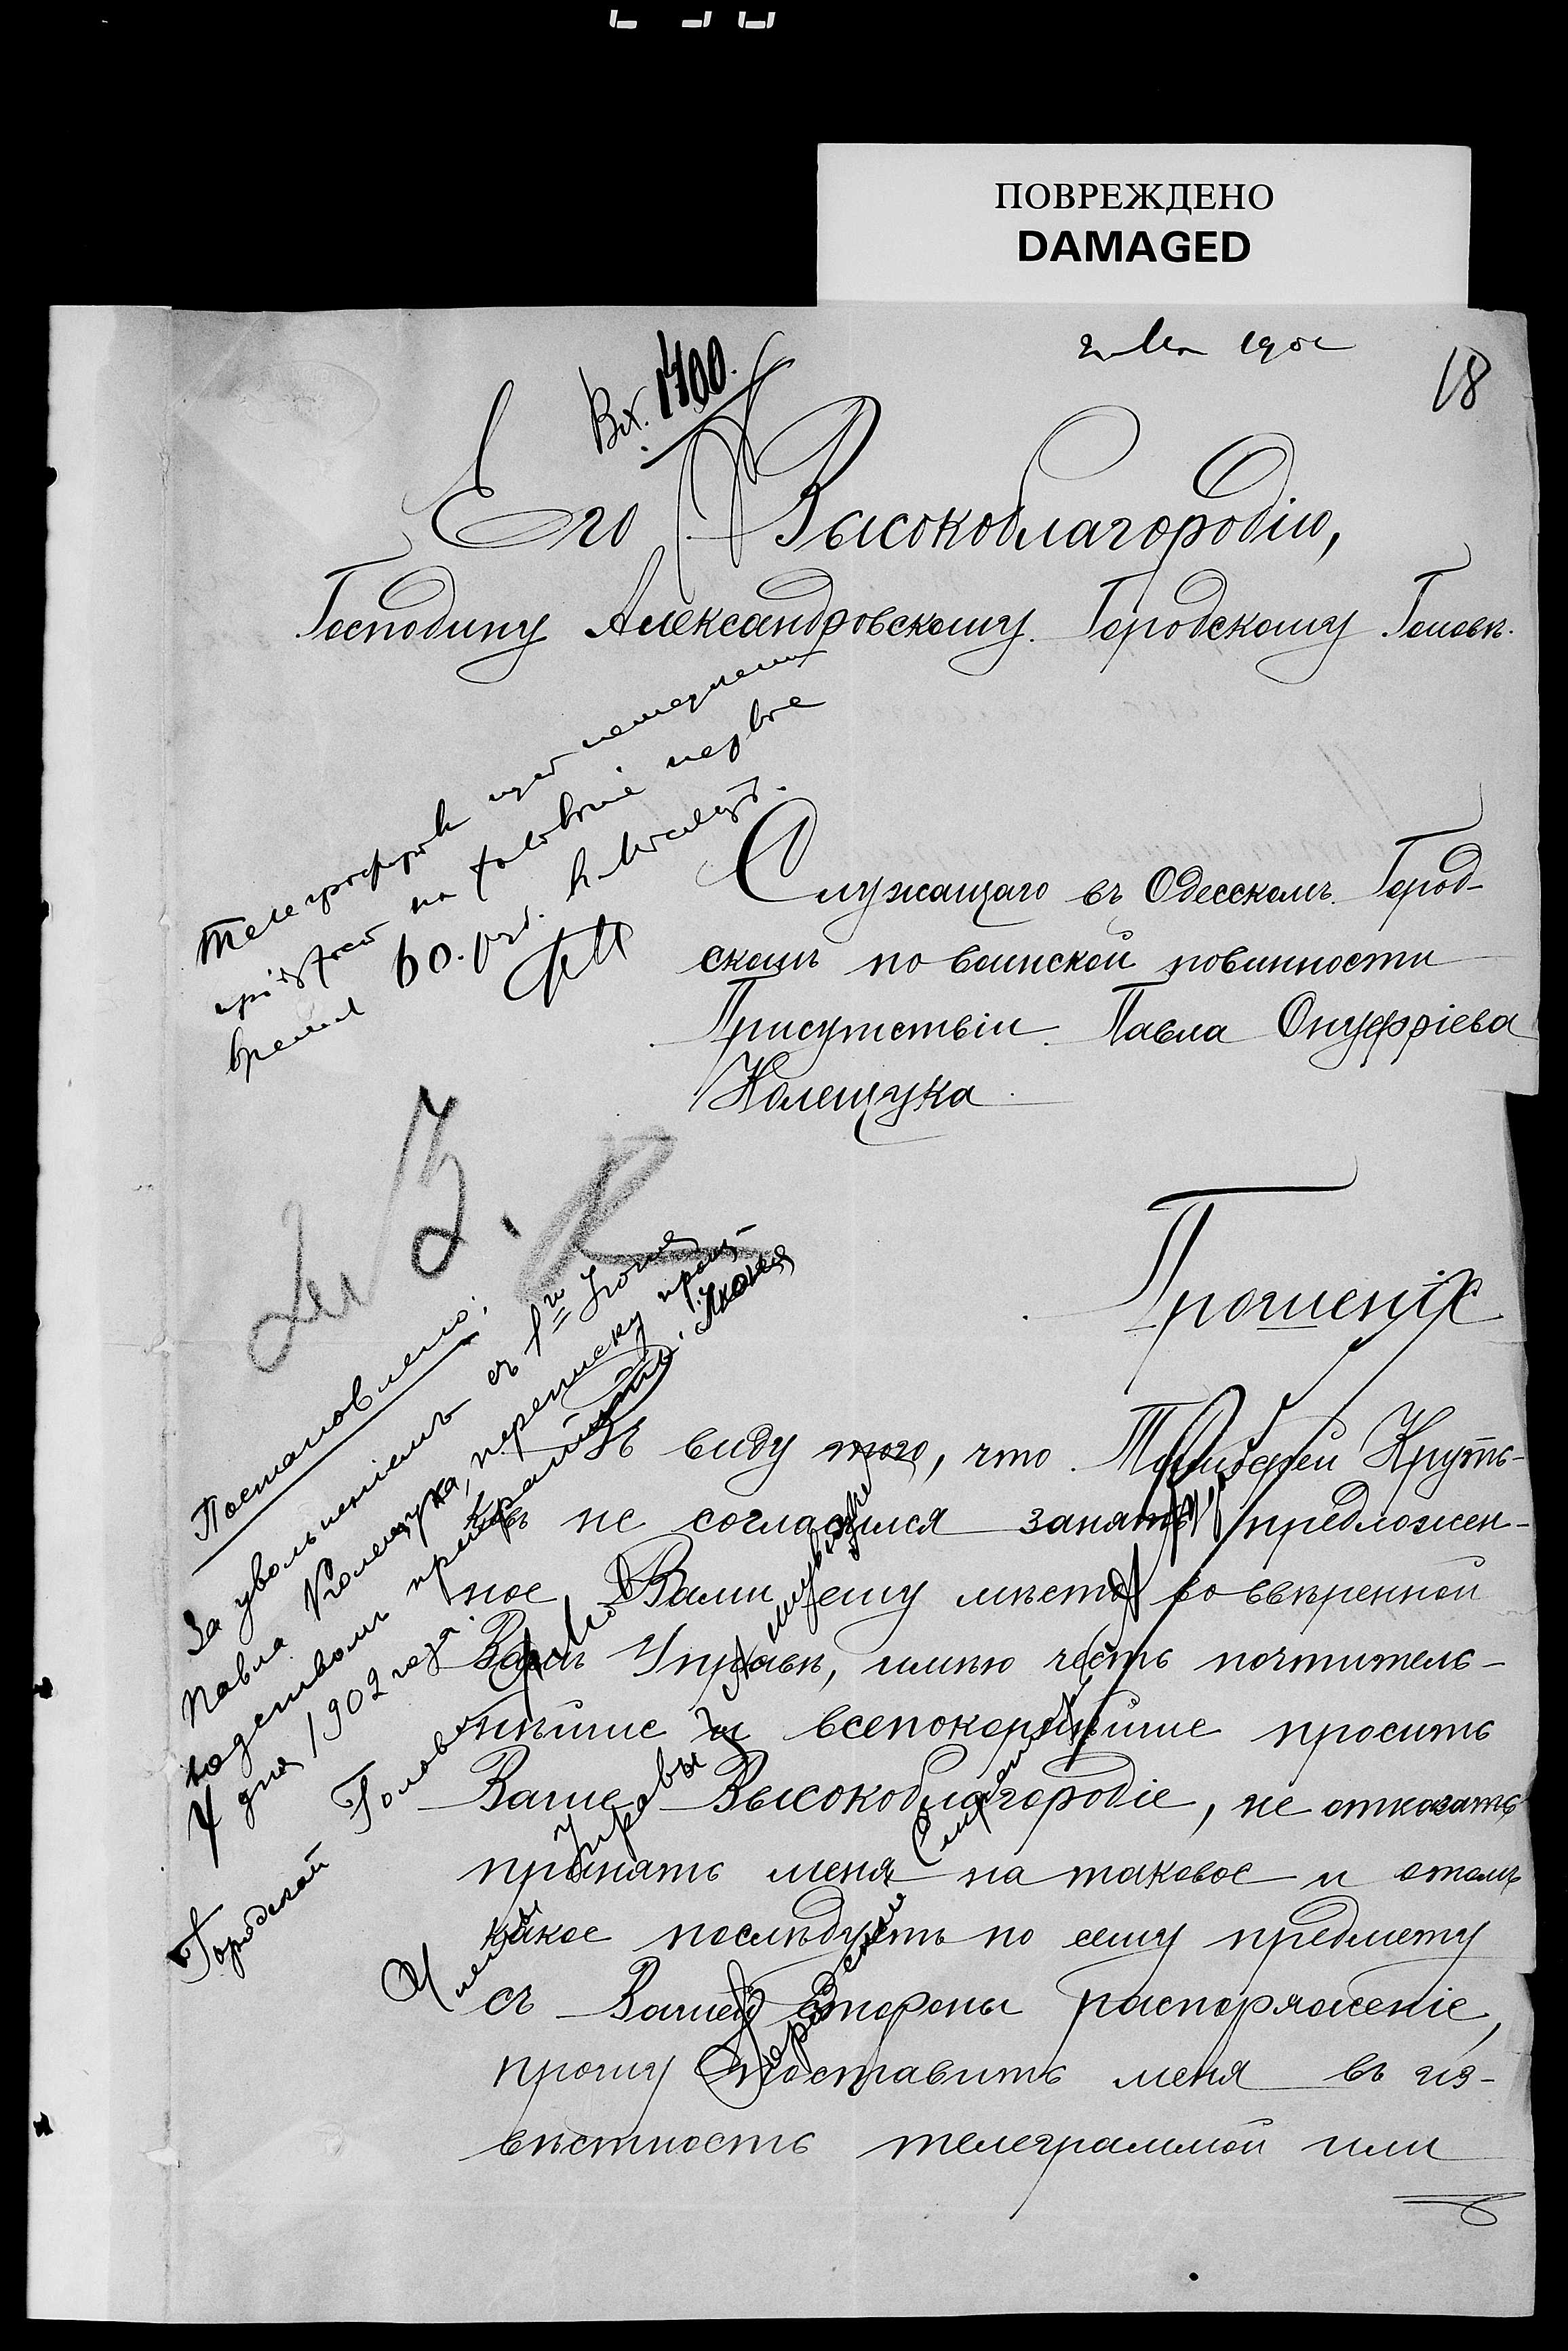 ПОВРЕЖДЕНО
DAMAGED
18
Вх. 1400.
Его Высокоблагородію,
Господину Александровскому Городскому Головѣ.
Телеграфировать
на условіе
время 60. руб.
Служащаго въ Одесскомъ Город-
скомъ по воинской повинности
Присутствіи Павла Онуфріева
Колещука
Прошеніе
Постановлено:
За увольненіемъ съ 1го Іюня
Павла Колещука, переписку произ-
водствомъ прекратить. Іюня
4 дня 1902 года.
Городской Голова
Члены Управы
Городской Секретарь
Въ виду того, что Тимофей Крутъ-
ко не согласился занять предложен-
ное Вами ему мѣсто во ввѣренной
Вамъ Управѣ, имѣю честь почтитель-
нѣйше и всепокорнѣйше просить
Ваше Высокоблагородіе, не отказать
принять меня на таковое и отомъ
какое послѣдуетъ по сему предмету
съ Вашей стороны распоряженіе,
прошу поставить меня въ из-
вѣстность телеграммой или